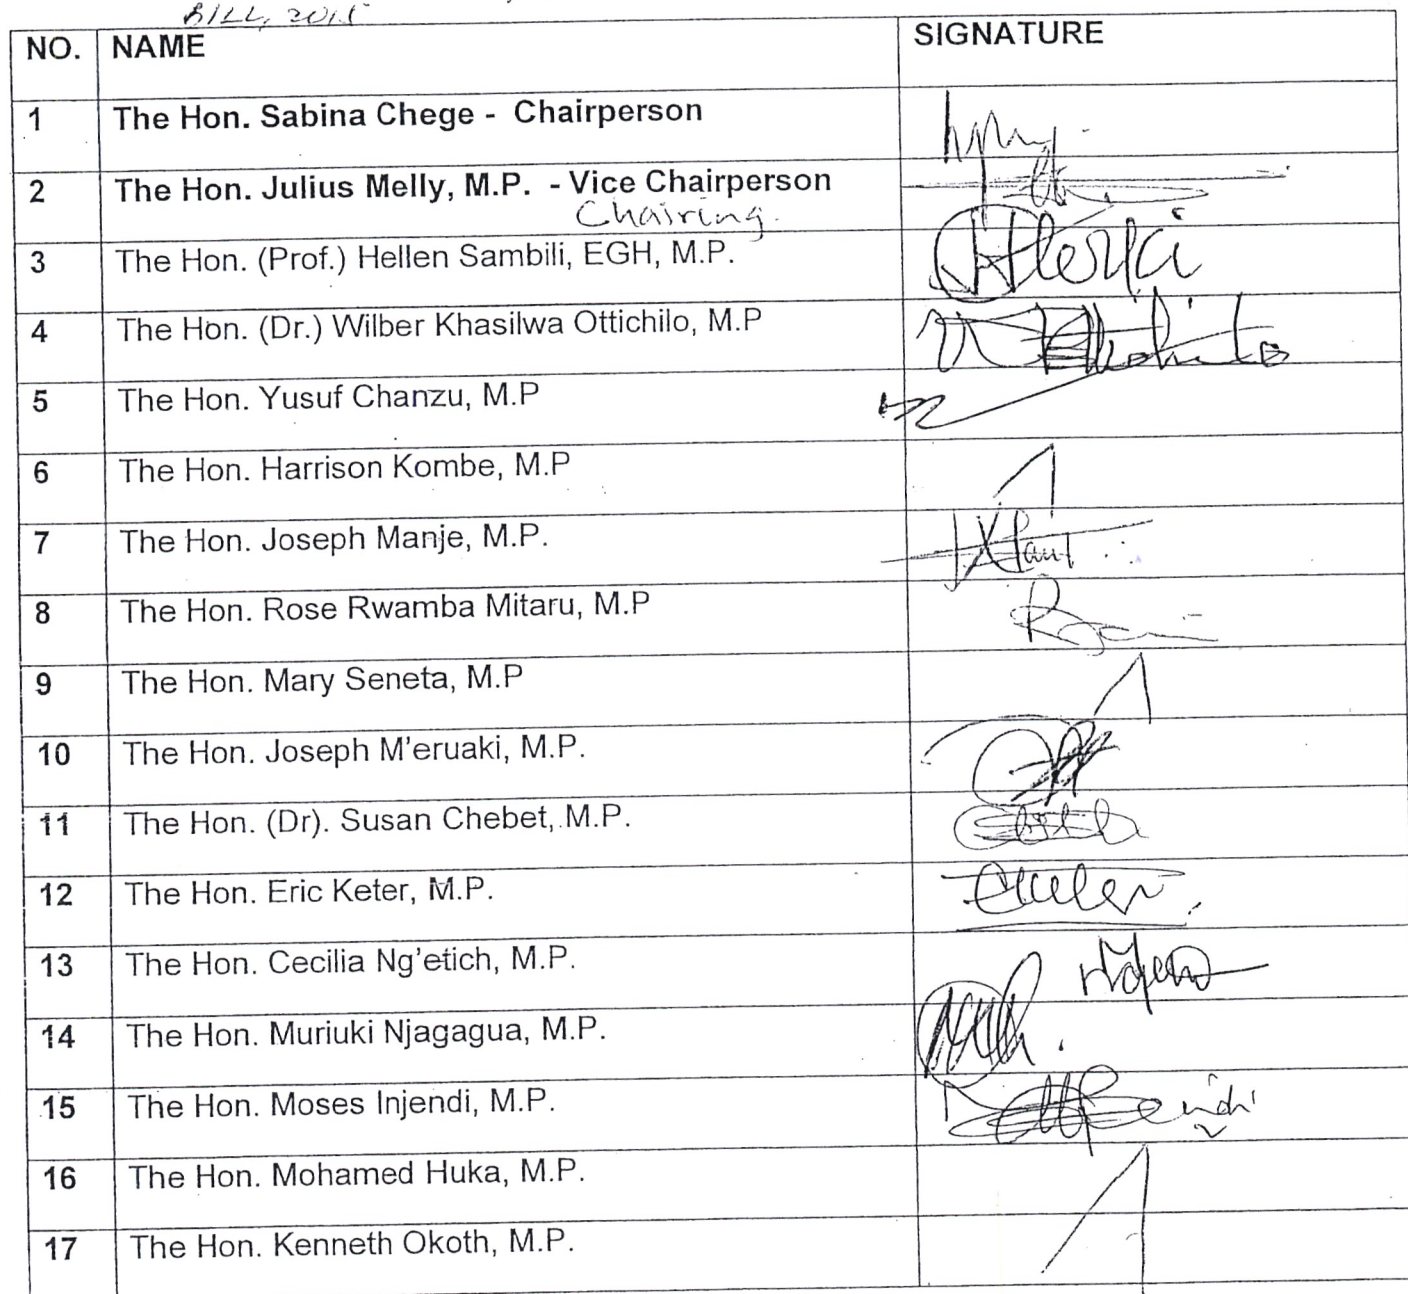 BILL, 2015
NO. NAME SIGNATURE
1 The Hon. Sabina Chege - Chairperson
2 The Hon. Julius Melly, M.P. - Vice Chairperson
Chairing.
3 The Hon. (Prof.) Hellen Sambili, EGH, M.P.
4 The Hon. (Dr.) Wilber Khasilwa Ottichilo, M.P
5 The Hon. Yusuf Chanzu, M.P
6 The Hon. Harrison Kombe, M.P
7 The Hon. Joseph Manje, M.P.
8 The Hon. Rose Rwamba Mitaru, M.P
9 The Hon. Mary Seneta, M.P
10 The Hon. Joseph M'eruaki, M.P.
11 The Hon. (Dr). Susan Chebet, M.P.
12 The Hon. Eric Keter, M.P.
13 The Hon. Cecilia Ng'etich, M.P.
14 The Hon. Muriuki Njagagua, M.P.
15 The Hon. Moses Injendi, M.P.
16 The Hon. Mohamed Huka, M.P.
17 The Hon. Kenneth Okoth, M.P.